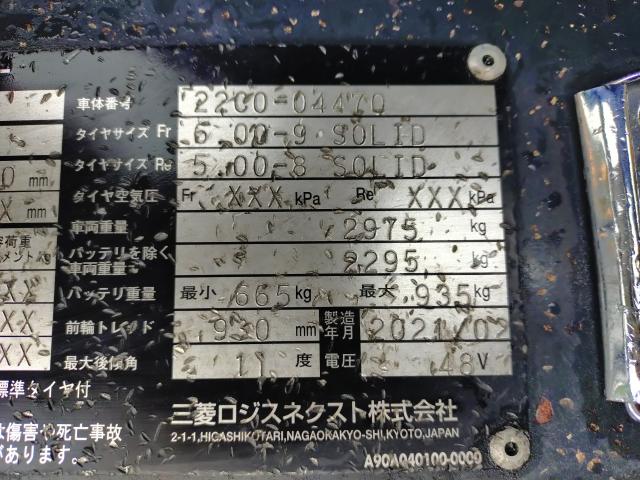 車体番号 22C0-04470
タイヤサイズ Fr 6.00-9 SOLID
タイヤサイズ Re 5.00-8 SOLID
mm タイヤ空気圧 Fr XXX kPa Re XXX kPa
mm 車両重量 2975 kg
バッテリを除く車両重量 2295 kg
バッテリ重量 最小 665 kg 最大 935 kg
XX 前輪トレッド 930 mm 製造年月 2021/0
XX 最大後傾角 11 度 電圧 48 V
標準タイヤ付
三菱ロジスネクスト株式会社
は傷害や死亡事故
2-1-1,HIGASHIKOTARI,NAGAOKAKYO-SHI,KYOTO,JAPAN
があります。
A90A040100-0000